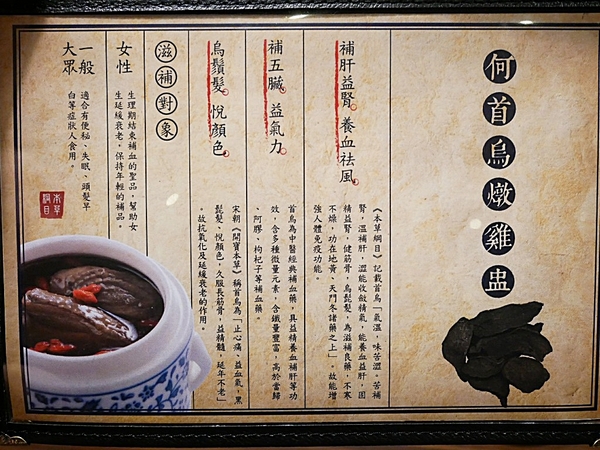 何首烏燉雞盅
補肝益腎。養血祛風。
《本草綱目》記載首烏「氣溫，味苦澀。苦補
腎，溫補肝，澀能收斂精氣，能養血益肝，固
精益腎，健筋骨，烏髭髮，為滋補良藥，不寒
不燥，功在地黃、天門冬諸藥之上」。故能增
強人體免疫功能。
補五臟。益氣力。
首烏為中醫經典補血藥，具益精養血補肝等功
效，含多種微量元素，含鐵量豐富，高於當歸
、阿膠、枸杞子等補血藥。
烏鬚髮。悅顏色。
宋朝《開寶本草》稱首烏為「止心痛、益血氣，黑
髭髮、悅顏色，久服長筋骨，益精髓，延年不老」
，故抗氧化及延緩衰老的作用。
滋補對象
女性
生理期結束補血的聖品，幫助女
生延緩衰老，保持年輕的補品。
一般
大眾
適合有便秘、失眠、頭髮早
白等症狀人食用。
本草
綱目